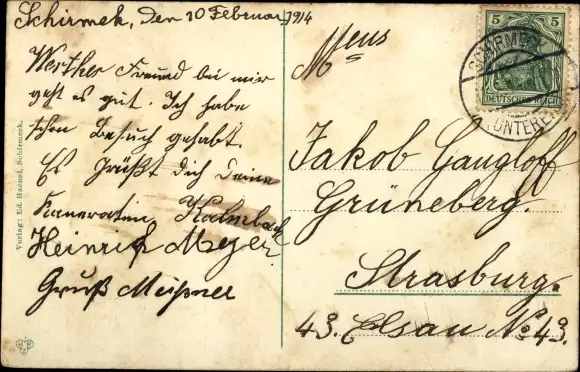 Schirmek, den 10 Februar 1914
Werther Freund bei mir
geht es gut. Ich habe
schon Besuch gehabt.
Es grüßt dich deine
Kameraten, Kalmbach
Heinrich Meyer
Gruß Meißner
Verlag: Ed. Haenel, Schirmeck.
Meus
Jakob Gangloff
Grüneberg.
Strasburg.
43. Elsau No 43.
5 5
DEUTSCHES REICH
SCHIRMECK
(UNTEREL